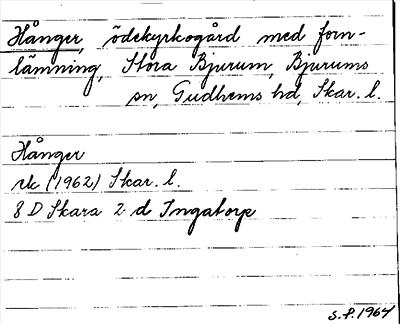 Hånger, ödekyrkogård med forn-
lämning, Stora Bjurum, Bjurums
sn, Gudhems hd, Skar. l.
Hånger
rk (1962) Skar. l.
8 D Skara 2 d Ingatorp
S.F. 1964